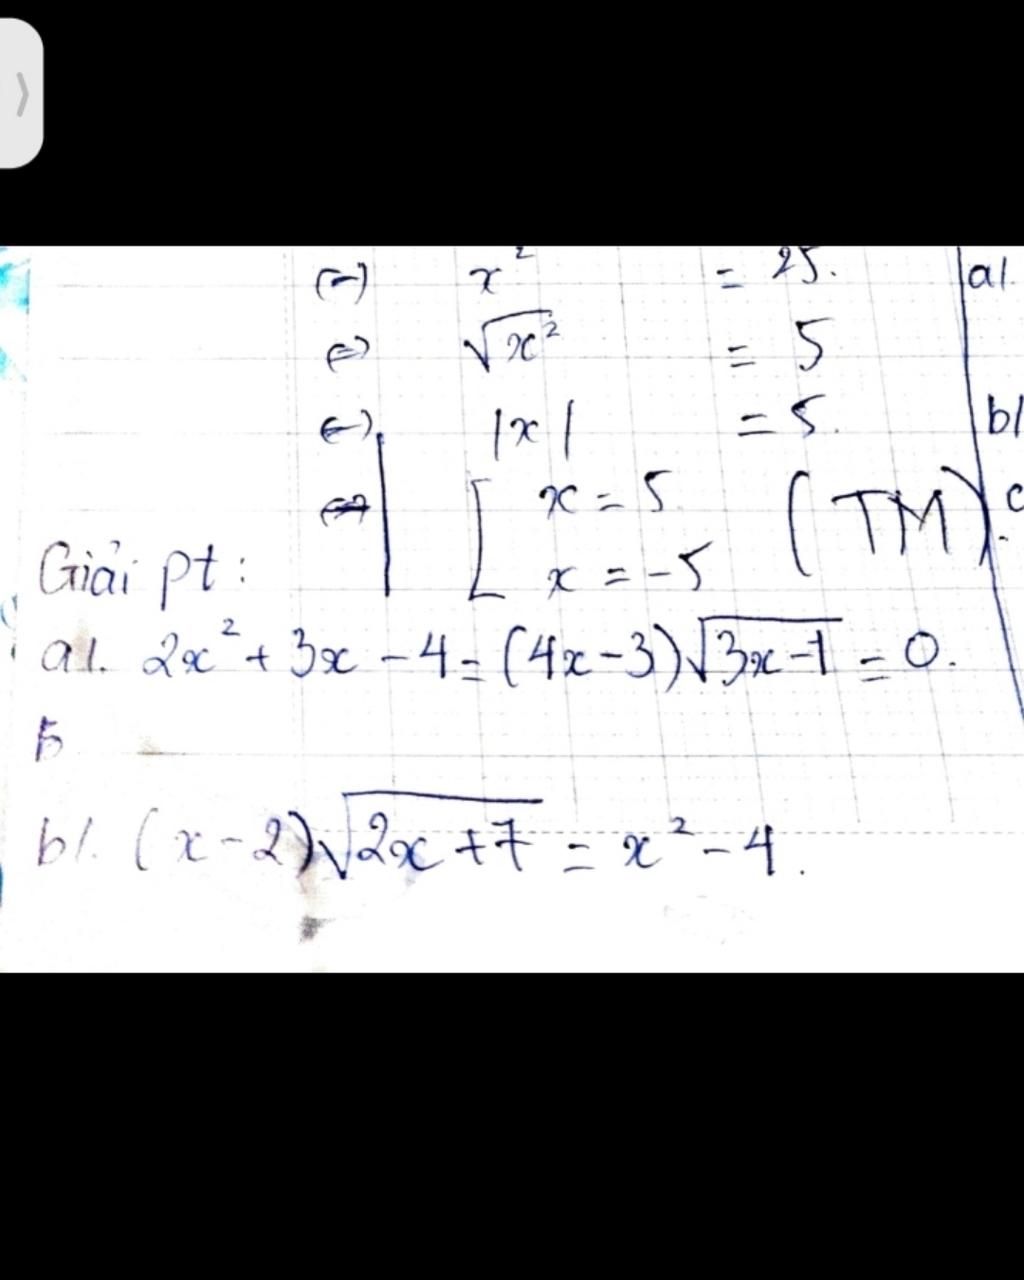 (=) x² = 25. a/.
(=) √x² = 5
(=) |x| = 5. b/
(=) [ x = 5 (TM). c
x = -5
Giải pt:
a/. 2x² + 3x - 4 = (4x-3)√3x-1 = 0.
b/. (x-2)√2x+7 = x² - 4.